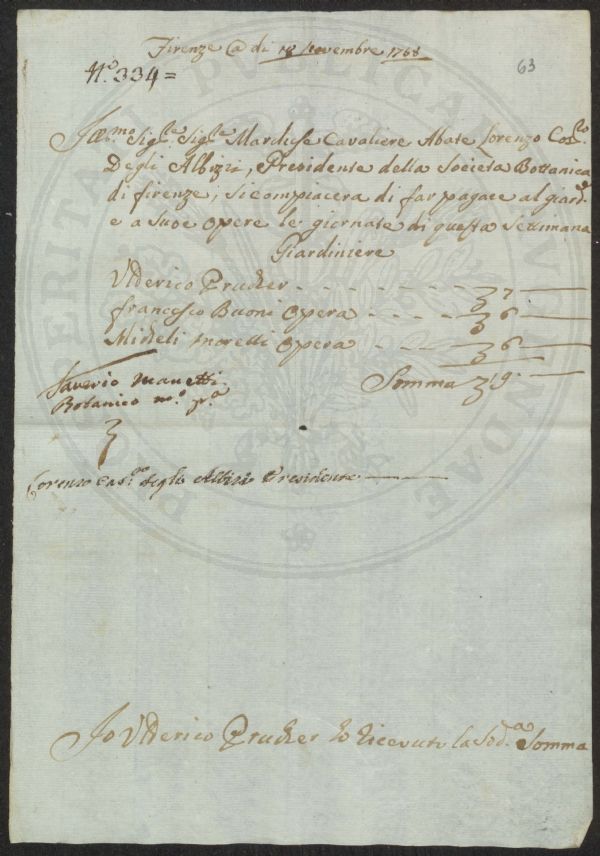 Firenze @ di 18 Novembre 1768
63
N.° 334 =
Ill.mo Sig.re Sig.re Marchese Cavaliere Abate Lorenzo Cos.mo
Degli Albizzi, Presidente della Societa Bottanica
di firenze, si compiacera di far pagare al giard.e
e a sue opere le giornate di questa Settimana
Giardiniere
Vlderico Prucker - - - - - - 7 —
francesco Buoni opera - - - - 6 —
Micheli morelli opera - - - - 6 —
Somma 19 —
Saverio Manetti
Botanico m.o p.a
Lorenzo Cas.mo degli Albizi Presidente —
Io Vlderico Prucker ho ricevuto la Sod.a Somma
PROSPERITATI PUBLICAE AUGENDAE